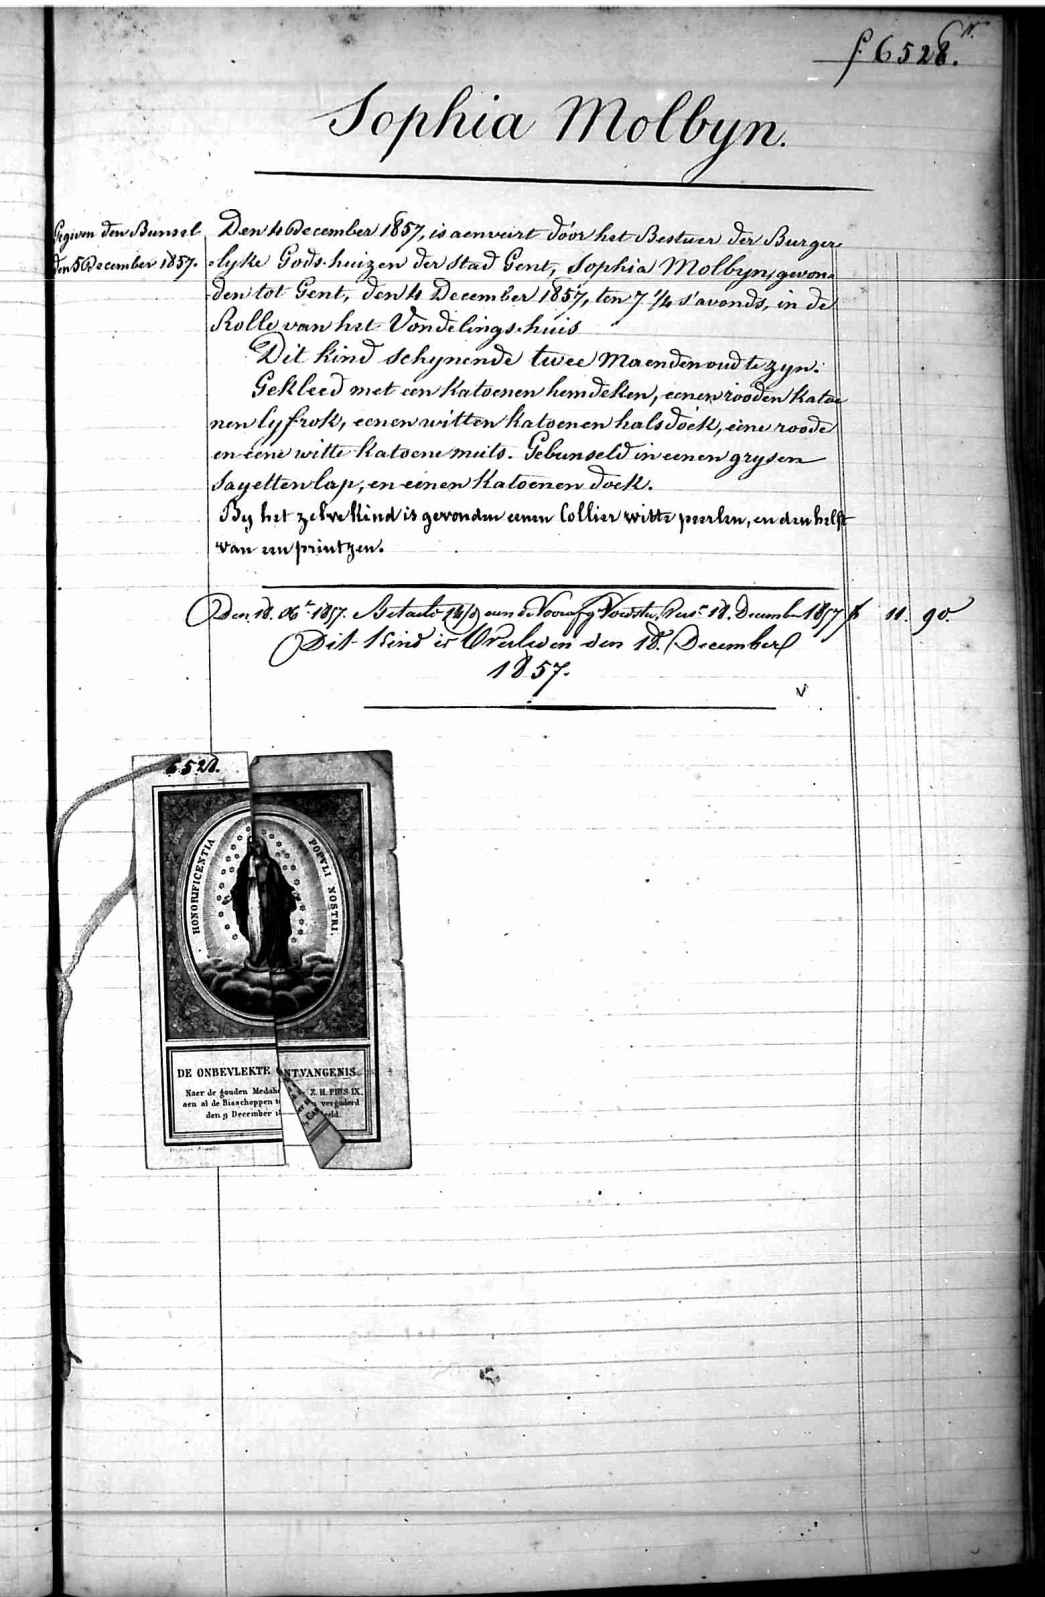 f. 6528.
Sophia Molbyn.
Gegeven den Bunsel
den 5 December 1857.
Den 4 December 1857, is aenveirt dóor het Bestuer der Burger
-lyke Gods-huizen der stad Gent, Sophia Molbyn, gevon-
den tot Gent, den 4 December 1857, ten 7 1/4 s'avonds, in de
Rolle van het Vondelings-huis
Dit kind schynende twee Maenden oud te zyn.
Gekleed met een Katoenen hemdeken, eenen rooden Katoe
nen lyfrok, eenen witten Katoenen halsdoek, eene roode
en eene witte Katoene muts. Gebunseld in eenen grysen
Sayetten lap, en eenen Katoenen doek.
By het zelve Kind is gevonden eenen Collier witte peerlen, en den helft
van een printjen.
Den 18. 1857. Betaeld aen de 18. December 1857 f 11. 90.
Dit Kind is Overleden den 18. December
1857.
6528.
HONORIFICENTIA POPVLI NOSTRI.
DE ONBEVLEKTE ONTVANGENIS.
Naer de gouden Z. H. PIUS IX.
aen al de Bisschoppen vergaderd
den 9 December